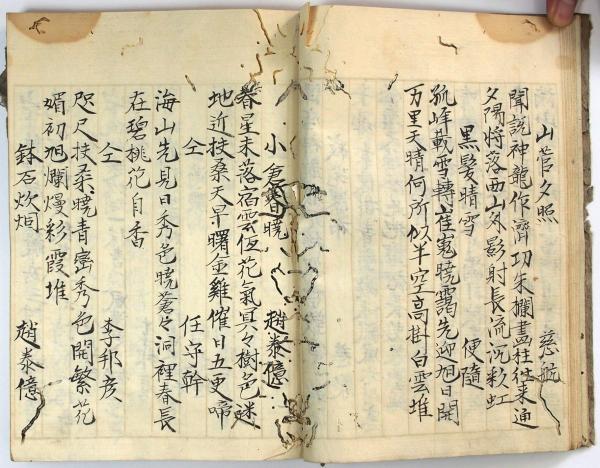 山菅夕照 慈眠
聞説神龍作濟功朱欄畫柱往来通
夕陽将落西山外影射長流沉彩虹
黒髪晴雪 便隨
孤峰載雪轉崔嵬暁靄先迎旭日開
万里天晴何所似半空高掛白雲堆
小倉春暁 趙泰億
春星未落宿雲低花氣冥々樹色迷
地近扶桑天早曙金雞催日五更啼
仝 任守幹
海山先見日秀色暁蒼々洞裡春長
在碧桃花自香
仝 李邦彦
咫尺扶桑暁青巒秀色開繁花
媚初旭爛熳彩霞堆
鉢石炊烟 趙泰億